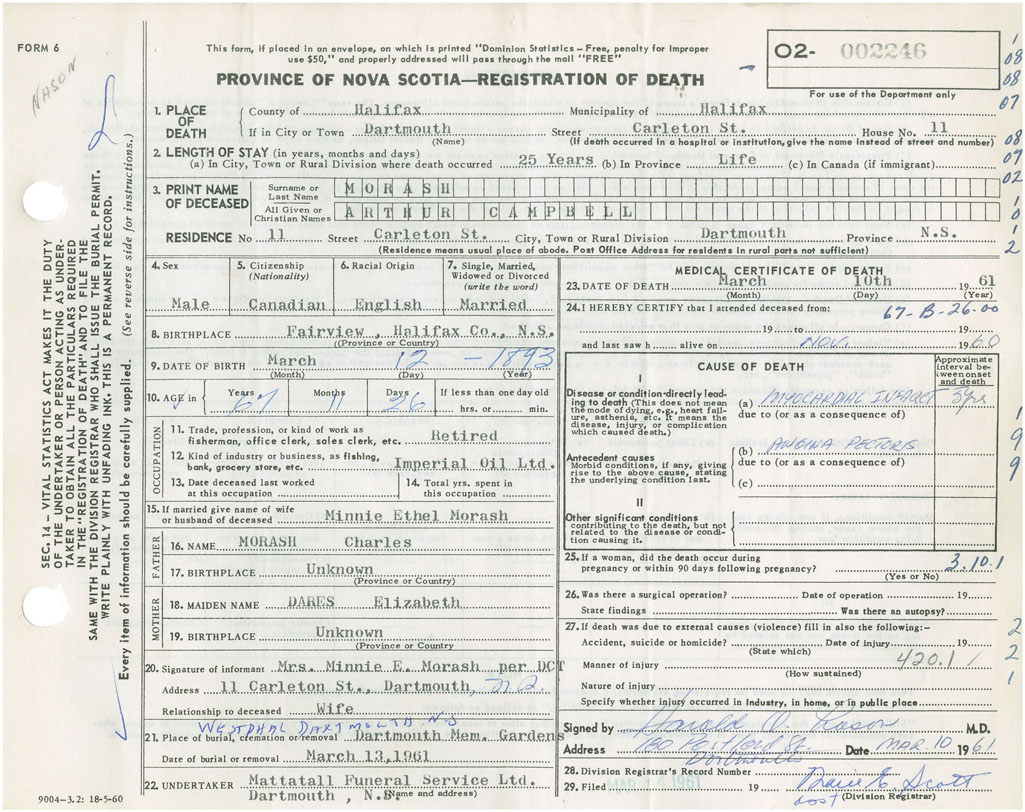 FORM 6
NASON
This form, if placed in an envelope, on which is printed "Dominion Statistics – Free, penalty for improper
use $50," and properly addressed will pass through the mail "FREE"
PROVINCE OF NOVA SCOTIA—REGISTRATION OF DEATH
02- 002246
For use of the Department only
1. PLACE OF DEATH
County of Halifax Municipality of Halifax
If in City or Town Dartmouth Street Carleton St. House No. 11
(Name) (If death occurred in a hospital or institution, give the name instead of street and number)
2. LENGTH OF STAY (in years, months and days)
(a) In City, Town or Rural Division where death occurred 25 Years (b) In Province Life (c) In Canada (if immigrant)
3. PRINT NAME OF DECEASED
Surname or Last Name MORASH
All Given or Christian Names ARTHUR CAMPBELL
RESIDENCE No 11 Street Carleton St. City, Town or Rural Division Dartmouth Province N.S.
(Residence means usual place of abode. Post Office Address for residents in rural parts not sufficient)
4. Sex Male
5. Citizenship (Nationality) Canadian
6. Racial Origin English
7. Single, Married, Widowed or Divorced (write the word) Married
8. BIRTHPLACE Fairview, Halifax Co., N.S.
(Province or Country)
9. DATE OF BIRTH March 12 - 1893
(Month) (Day) (Year)
10. AGE in Years 67 Months 11 Days 26 If less than one day old hrs. or min.
OCCUPATION
11. Trade, profession, or kind of work as
fisherman, office clerk, sales clerk, etc. Retired
12. Kind of industry or business, as fishing,
bank, grocery store, etc. Imperial Oil Ltd.
13. Date deceased last worked
at this occupation
14. Total yrs. spent in
this occupation
15. If married give name of wife
or husband of deceased Minnie Ethel Morash
FATHER
16. NAME MORASH Charles
17. BIRTHPLACE Unknown
(Province or Country)
MOTHER
18. MAIDEN NAME DARES Elizabeth
19. BIRTHPLACE Unknown
(Province or Country
20. Signature of informant Mrs. Minnie E. Morash per DCT
Address 11 Carleton St., Dartmouth, N.S.
Relationship to deceased Wife
WESTPHAL DARTMOUTH N.S
21. Place of burial, cremation or removal Dartmouth Mem. Gardens
Date of burial or removal March 13,1961
22. UNDERTAKER Mattatall Funeral Service Ltd.
Dartmouth , N.S. (Name and address)
MEDICAL CERTIFICATE OF DEATH
23. DATE OF DEATH March 10th 1961
(Month) (Day) (Year)
24. I HEREBY CERTIFY that I attended deceased from: 67-B-26-00
19 to 19
and last saw h alive on NOV. 1960
CAUSE OF DEATH
Approximate interval between onset and death
I
Disease or condition directly leading
to death (This does not mean
the mode of dying, e.g., heart failure,
asthenia, etc. It means the
disease, injury, or complication
which caused death.)
(a) MYOCARDIAL INFARCT 5yrs
due to (or as a consequence of)
Antecedent causes
Morbid conditions, if any, giving
rise to the above cause, stating
the underlying condition last.
(b) ANGINA PECTORIS
due to (or as a consequence of)
(c)
II
Other significant conditions
contributing to the death, but not
related to the disease or condition
causing it.
25. If a woman, did the death occur during
pregnancy or within 90 days following pregnancy? 3.10.1
(Yes or No)
26. Was there a surgical operation? Date of operation 19
State findings Was there an autopsy?
27. If death was due to external causes (violence) fill in also the following:–
Accident, suicide or homicide? Date of injury 19
(State which)
420.1
Manner of injury
(How sustained)
Nature of injury
Specify whether injury occurred in Industry, in home, or in public place
Signed by Harold O. Nason M.D.
Address 160 Portland St. Dartmouth Date MAR. 10 1961
28. Division Registrar's Record Number
29. Filed MAR 14 1961 19
Scott
(Division Registrar)
SEC. 14 – VITAL STATISTICS ACT MAKES IT THE DUTY
OF THE UNDERTAKER OR PERSON ACTING AS UNDERTAKER
TO OBTAIN ALL THE PARTICULARS REQUIRED
IN THE "REGISTRATION OF DEATH" AND TO FILE THE
SAME WITH THE DIVISION REGISTRAR WHO SHALL ISSUE THE BURIAL PERMIT.
WRITE PLAINLY WITH UNFADING INK. THIS IS A PERMANENT RECORD.
Every item of information should be carefully supplied. (See reverse side for instructions.)
9004–3.2: 18-5-60
1
08
08
07
08
07
02
1
0
1
2
1
9
9
2
2
1